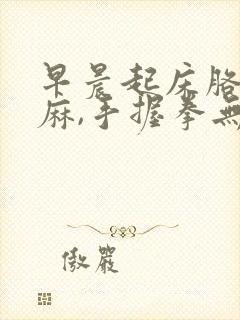 早晨起床胳
麻,手握拳無
傲嚴